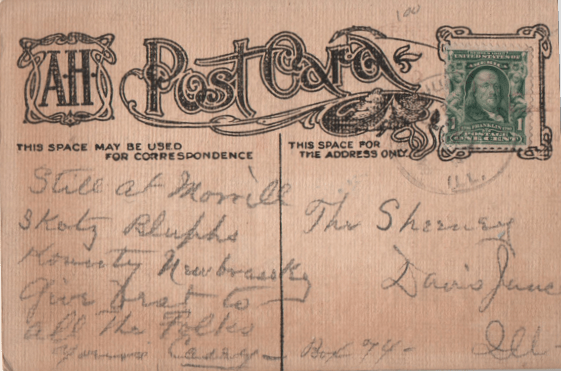 100
A.H.
Post Card
UNITED STATES OF AMERICA
FRANKLIN
POSTAGE
ONE CENT
ILL.
THIS SPACE MAY BE USED
FOR CORRESPONDENCE
THIS SPACE FOR
THE ADDRESS ONLY
Still at Morrill
Skotz Bluphs
Kounty Newbrassky
Give best to
all The Folks
Casey
The Sheeney
Davis Junc
Ill-
Box 74-